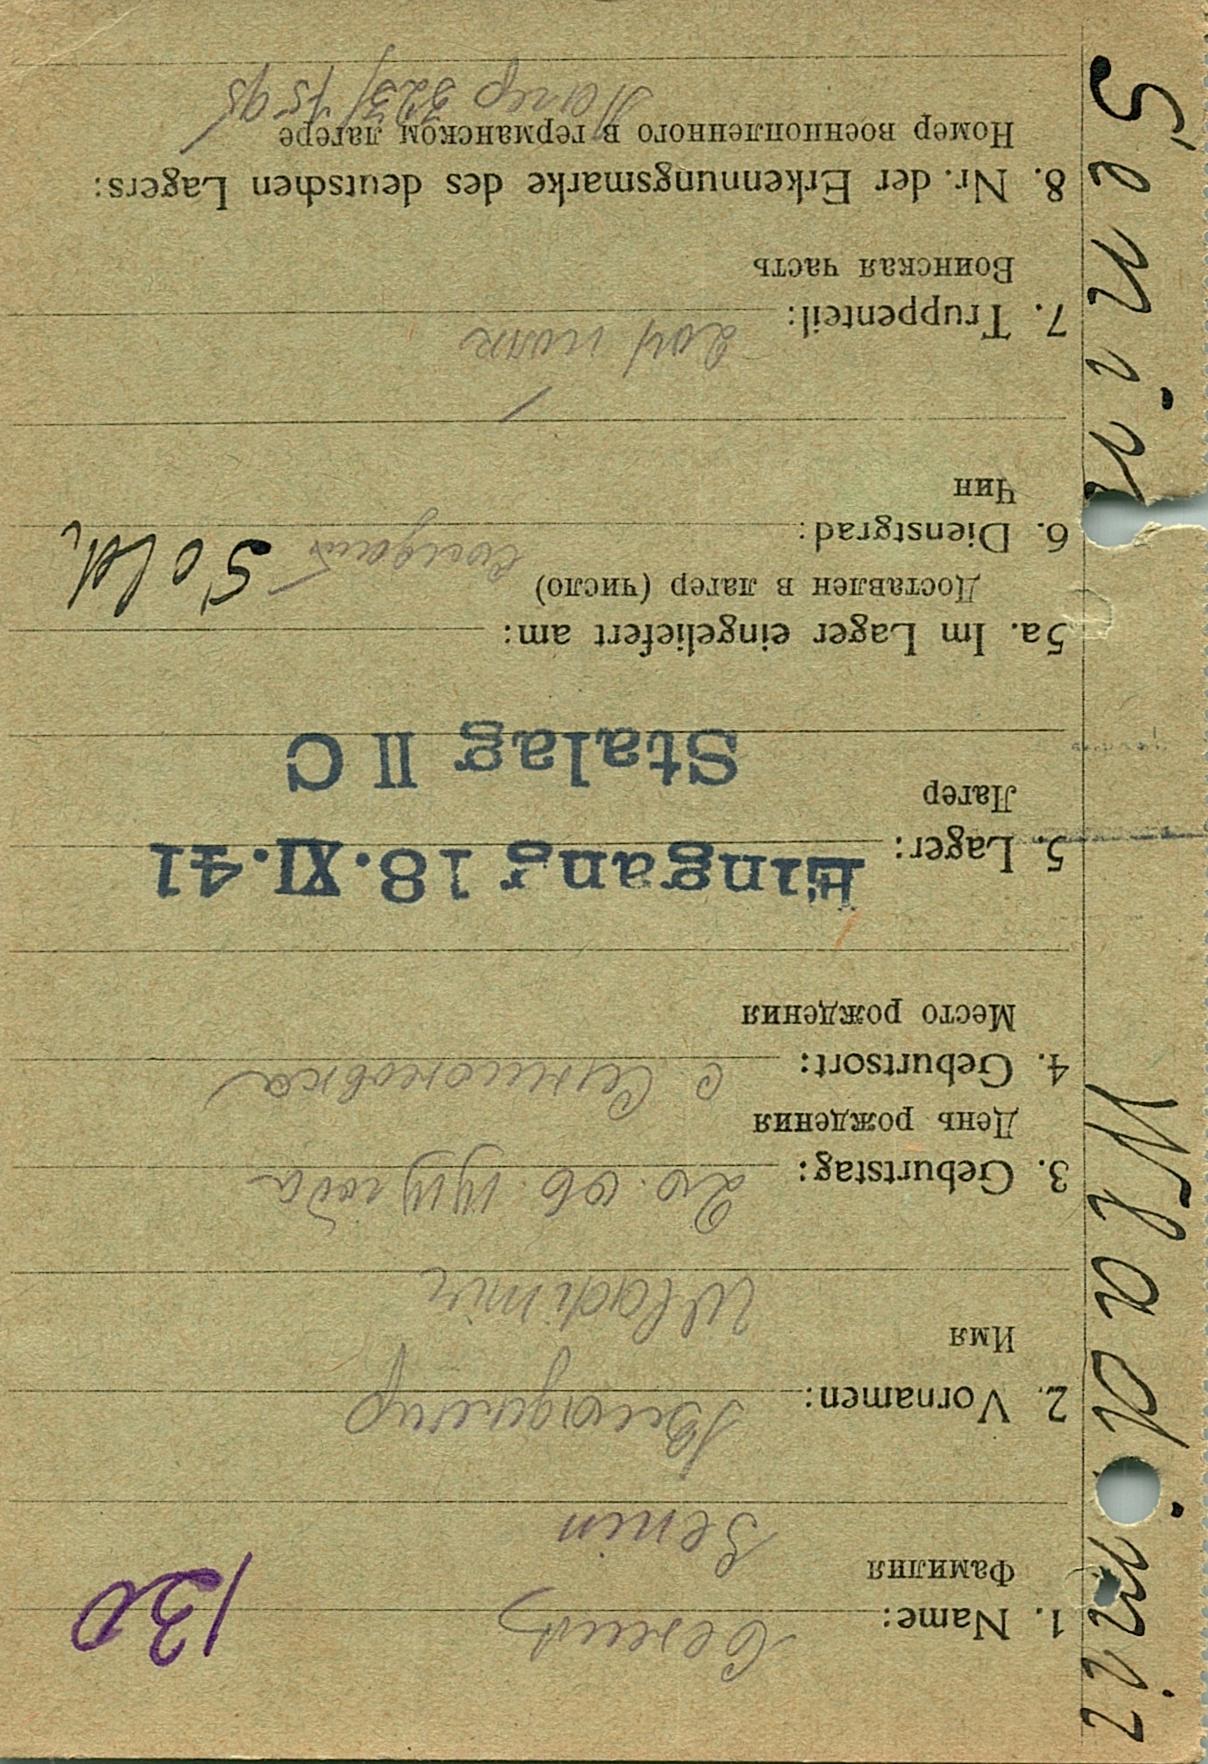 Semin Wladimir
130
1. Name: Семин
Фамилия
Semin
2. Vornamen: Владимир
Имя
Wladimir
3. Geburtstag: 20. 06. 1914 года
День рождения
4. Geburtsort: с.
Место рождения
5. Lager: Eingang 18. XI. 41
Лагер
Stalag II C
5a. Im Lager eingeliefert am:
Доставлен в лагер (число)
6. Dienstgrad: солдат Sold.
Чин
7. Truppenteil: 204 полк
Воинская часть
8. Nr. der Erkennungsmarke des deutschen Lagers:
Номер военнопленного в германском лагере
Лагер 323/